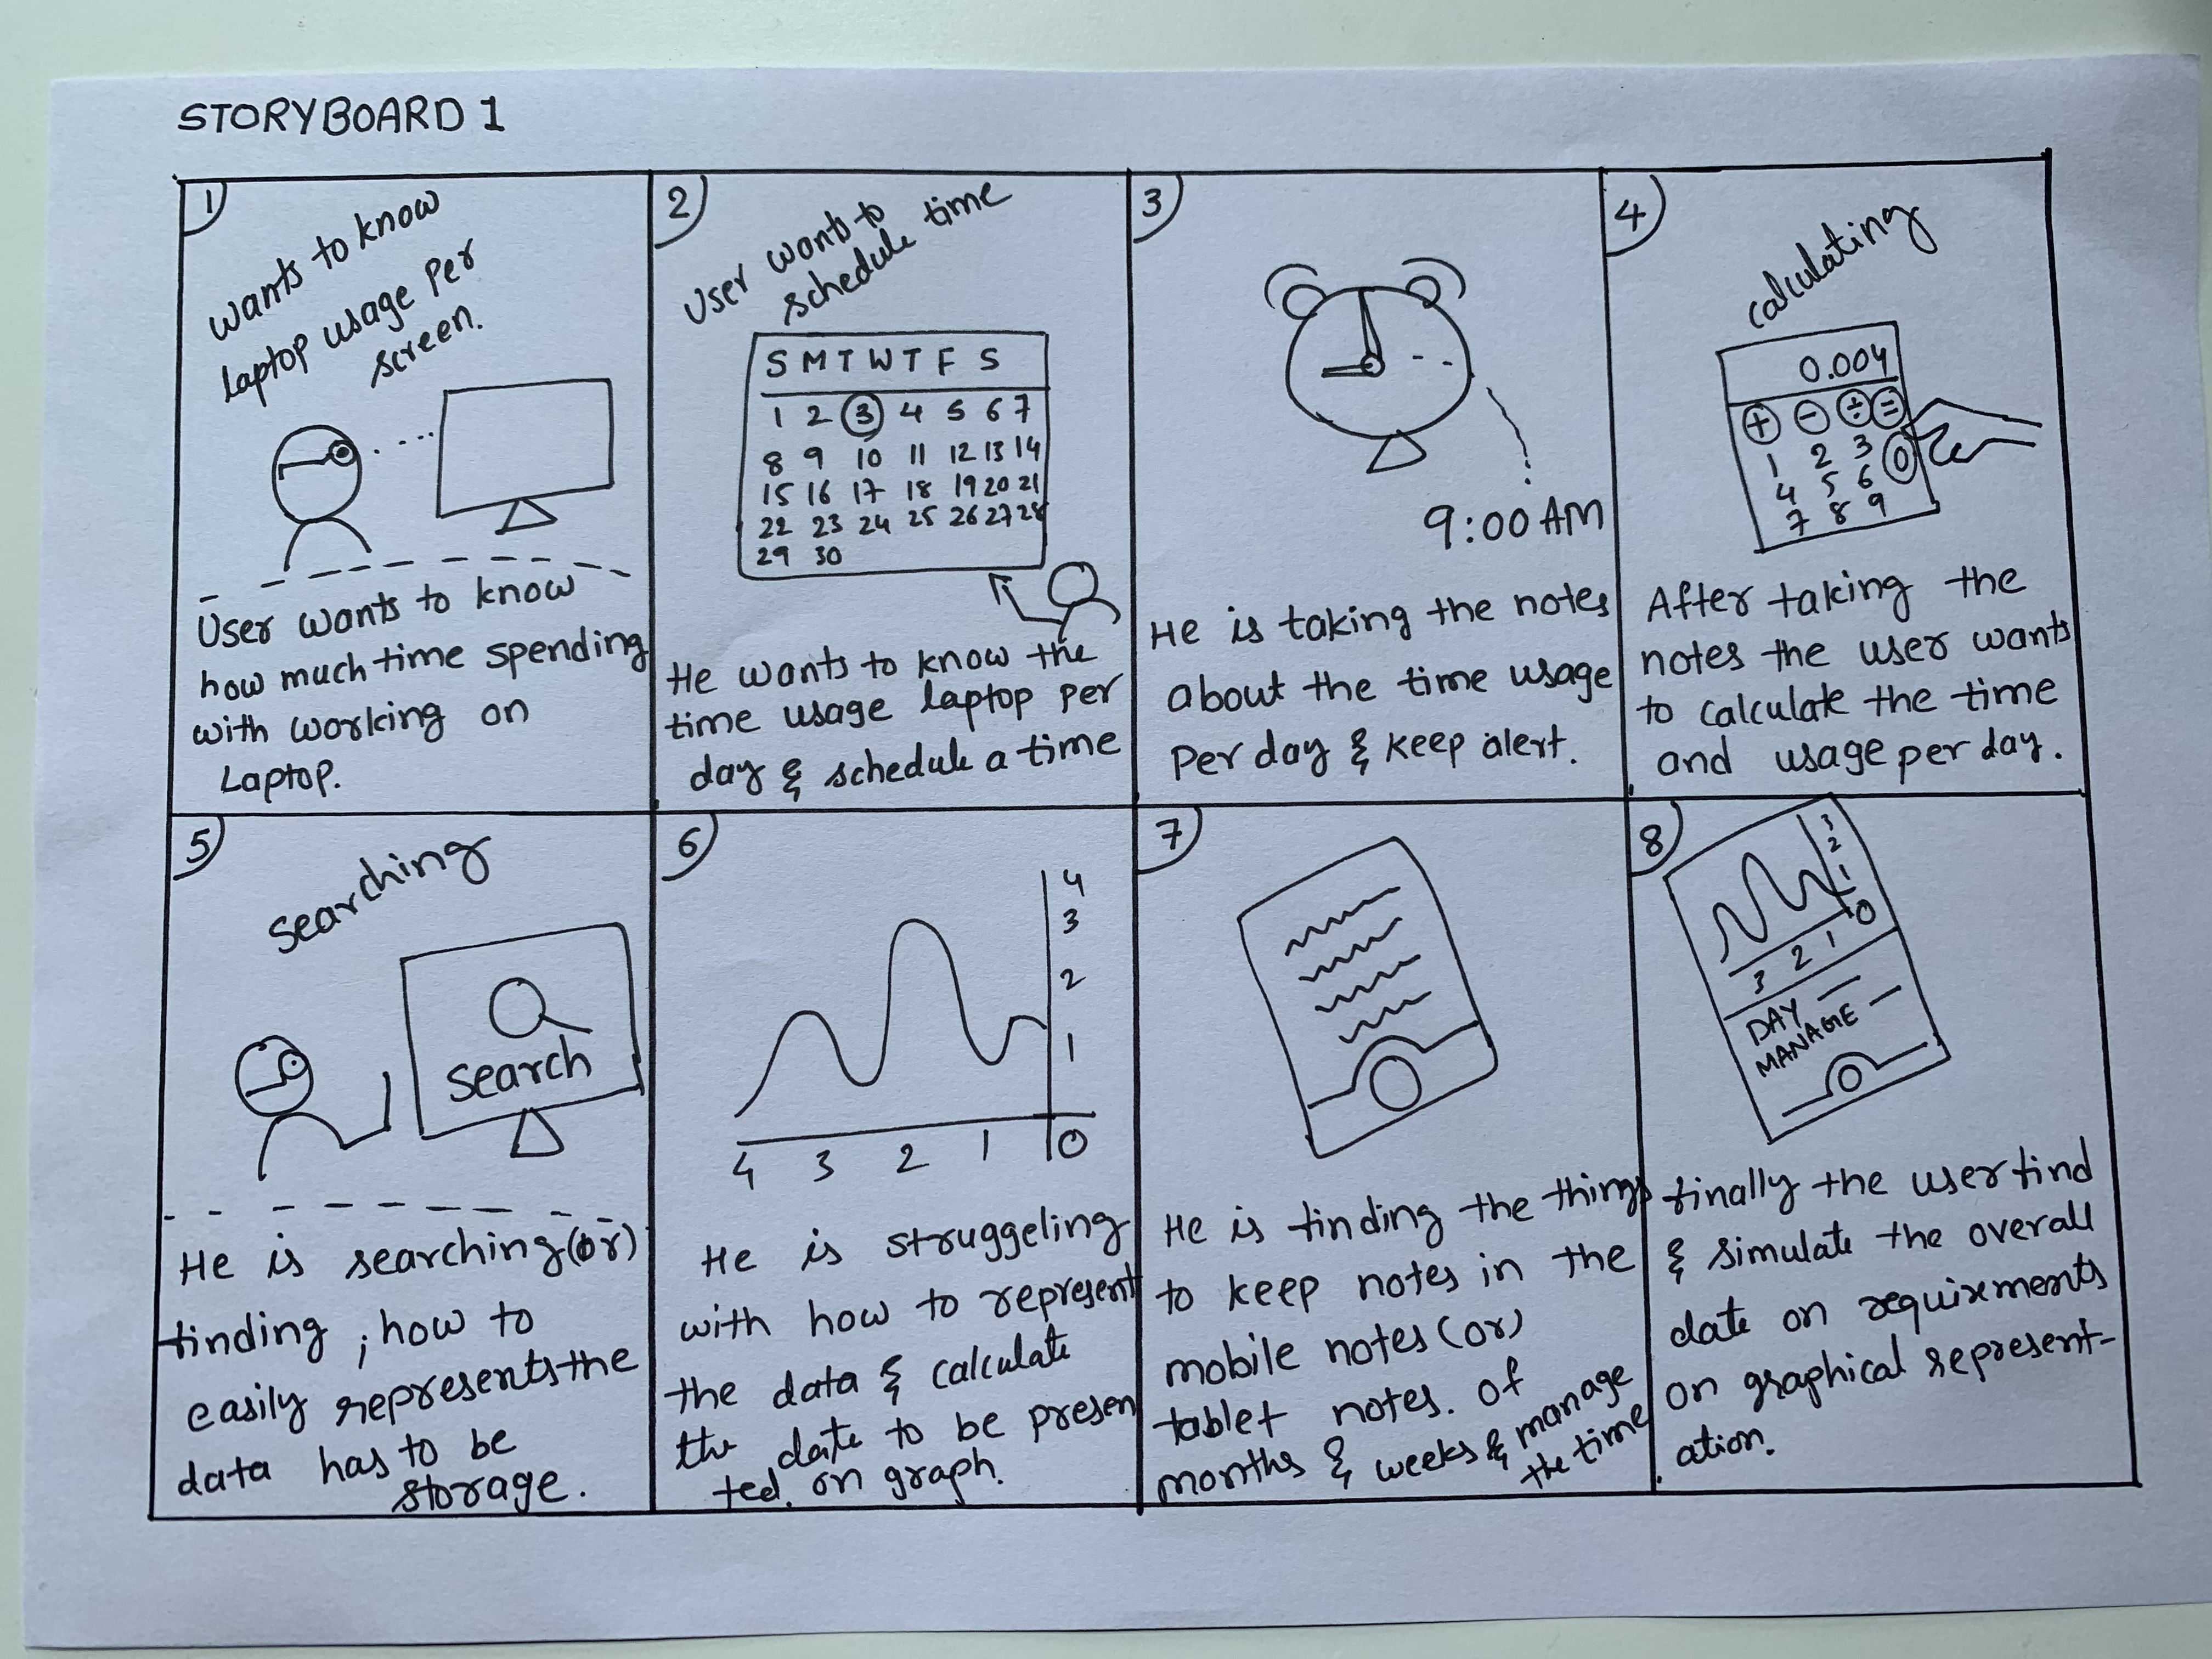 STORYBOARD 1
1
wants to know
Laptop usage per
screen.
User wants to know
how much time spending
with working on
Laptop.
2
User wants to
schedule time
S M T W T F S
1 2 3 4 5 6 7
8 9 10 11 12 13 14
15 16 17 18 19 20 21
22 23 24 25 26 27 28
29 30
He wants to know the
time usage laptop per
day & schedule a time
3
9:00 AM
He is taking the notes
about the time usage
Per day & keep alert.
4
calculating
0.004
+ - ÷ =
1 2 3
4 5 6 0
7 8 9
After taking the
notes the user wants
to calculate the time
and usage per day.
5
searching
search
He is searching(or)
finding ; how to
easily represents the
data has to be
storage.
6
4
3
2
1
4 3 2 1 0
He is struggeling
with how to represent
the data & calculate
the date to be presen
ted. on graph.
7
He is finding the things
to keep notes in the
mobile notes (or)
tablet notes. of
months & weeks & manage
the time
8
3
2
1
3 2 1 0
DAY
MANAGE
finally the user find
& simulate the overall
date on requirements
on graphical represent-
ation.